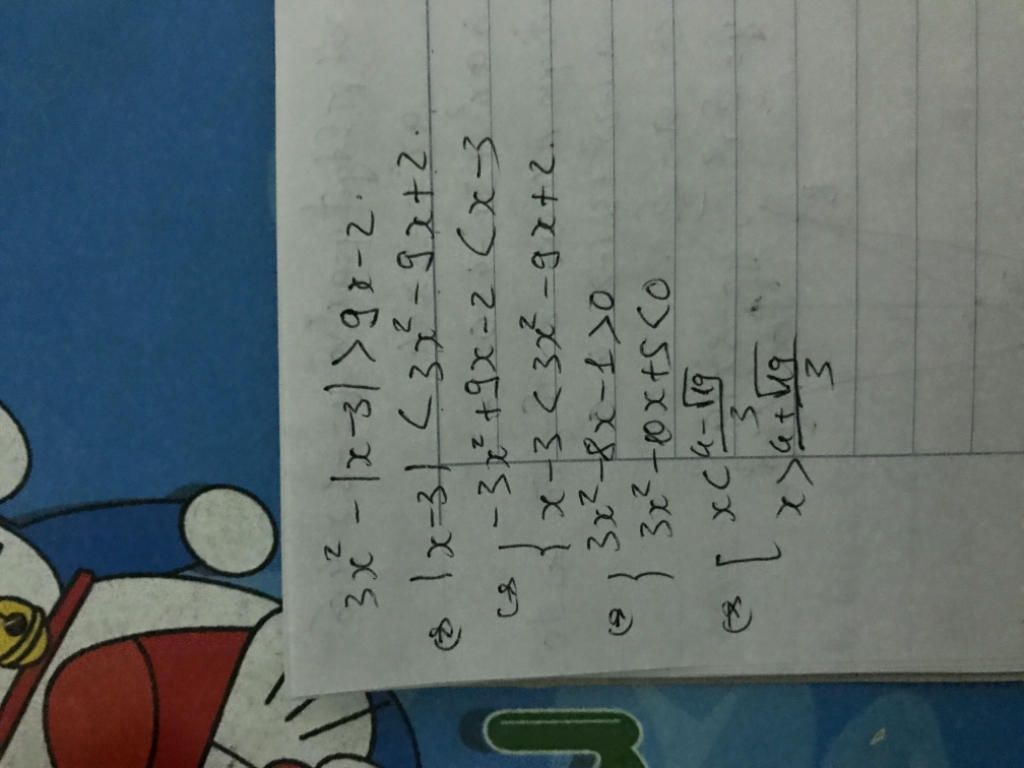 3x² - |x-3| > 9x-2.
⇔ |x-3| < 3x² - 9x+2.
⇔ { -3x² + 9x-2 < x-3
x-3 < 3x² - 9x+2.
⇔ { 3x² - 8x - 1 > 0
3x² - 10x + 5 < 0
⇔ [ x < (4-√19)/3
x > (4+√19)/3